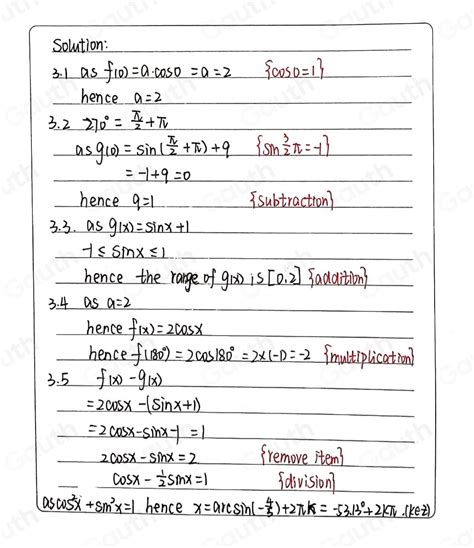 Solution:
3.1 as f(0)=a·cos0=a=2 {cos0=1}
hence a=2
3.2 270°=π/2+π
as g(0)=sin(π/2+π)+9 {sin 3/2 π=-1}
=-1+9=0
hence 9=1 {subtraction}
3.3. as g(x)=sinx+1
-1≤sinx≤1
hence the range of g(x) is [0.2] {addition}
3.4 as a=2
hence f(x)=2cosx
hence f(180°)=2cos180°=2×(-1)=-2 {multiplication}
3.5 f(x)-g(x)
=2cosx-(sinx+1)
=2cosx-sinx-1=1
2cosx-sinx=2 {remove item}
cosx-1/2sinx=1 {division}
as cos²x+sin²x=1 hence x=arcsin(-4/5)+2πk=-53.13°+2kπ.(k∈z)